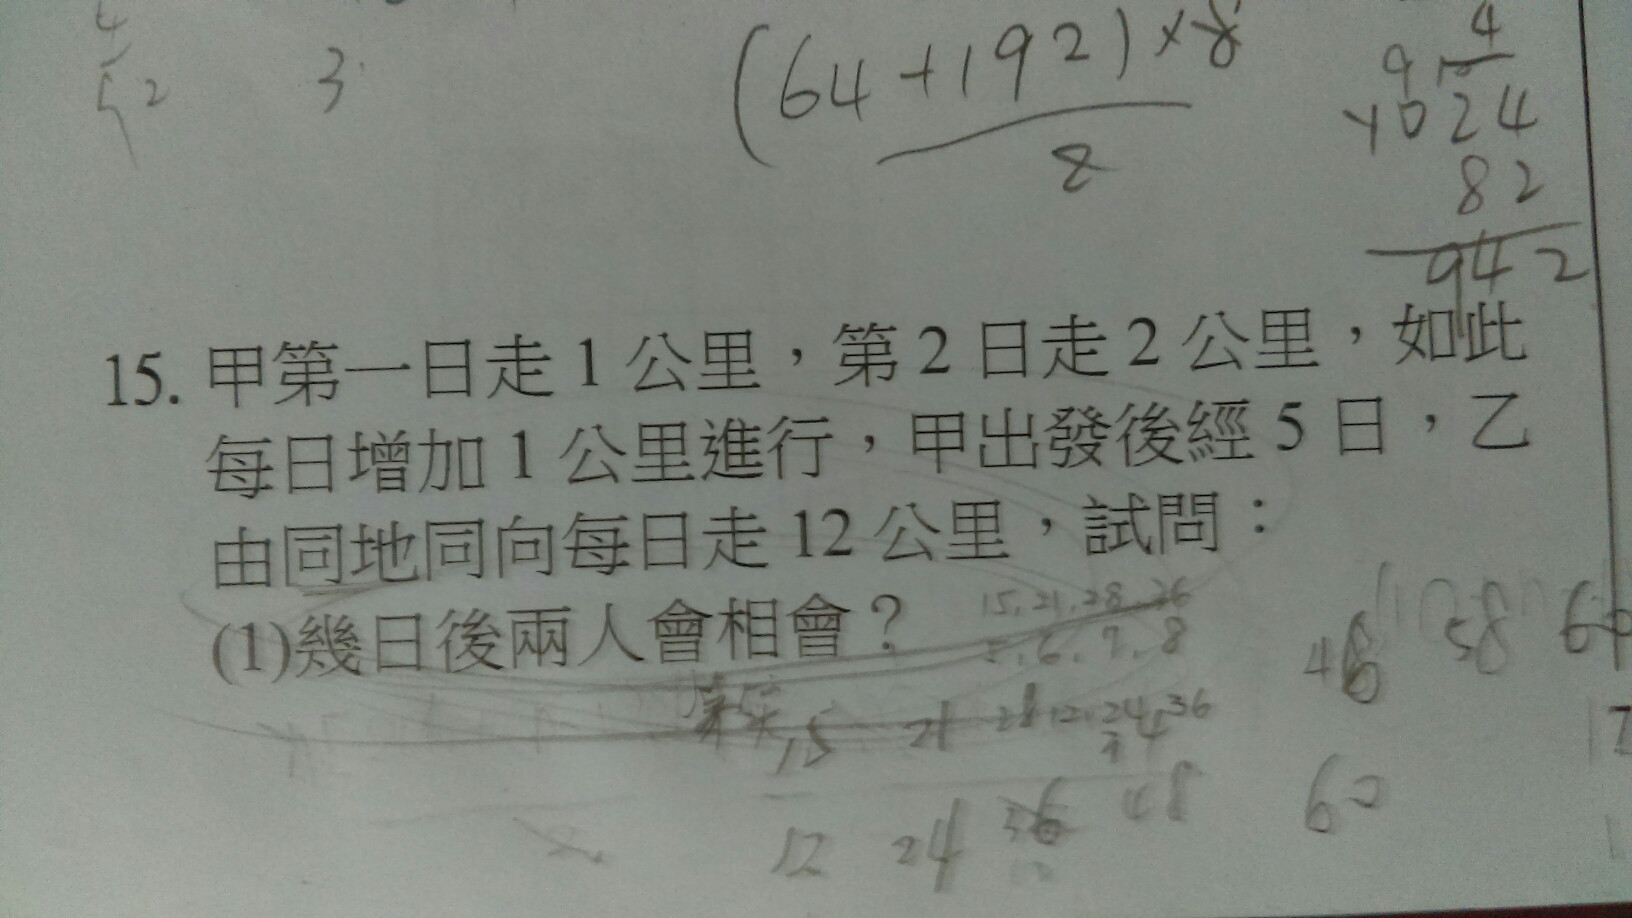 4
52
3
(64+192)×8
8
4
9 10
1024
82
942
15. 甲第一日走 1 公里，第 2 日走 2 公里，如此
每日增加 1 公里進行，甲出發後經 5 日，乙
由同地同向每日走 12 公里，試問：
(1)幾日後兩人會相會？
15, 21, 28, 36
5, 6, 7, 8
48 58 60
15 21 28 12, 24, 36
12 24 36 48 60